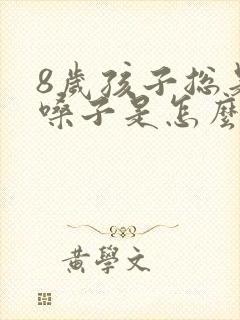 8歲孩子總
嗓子是怎麼
黃學文